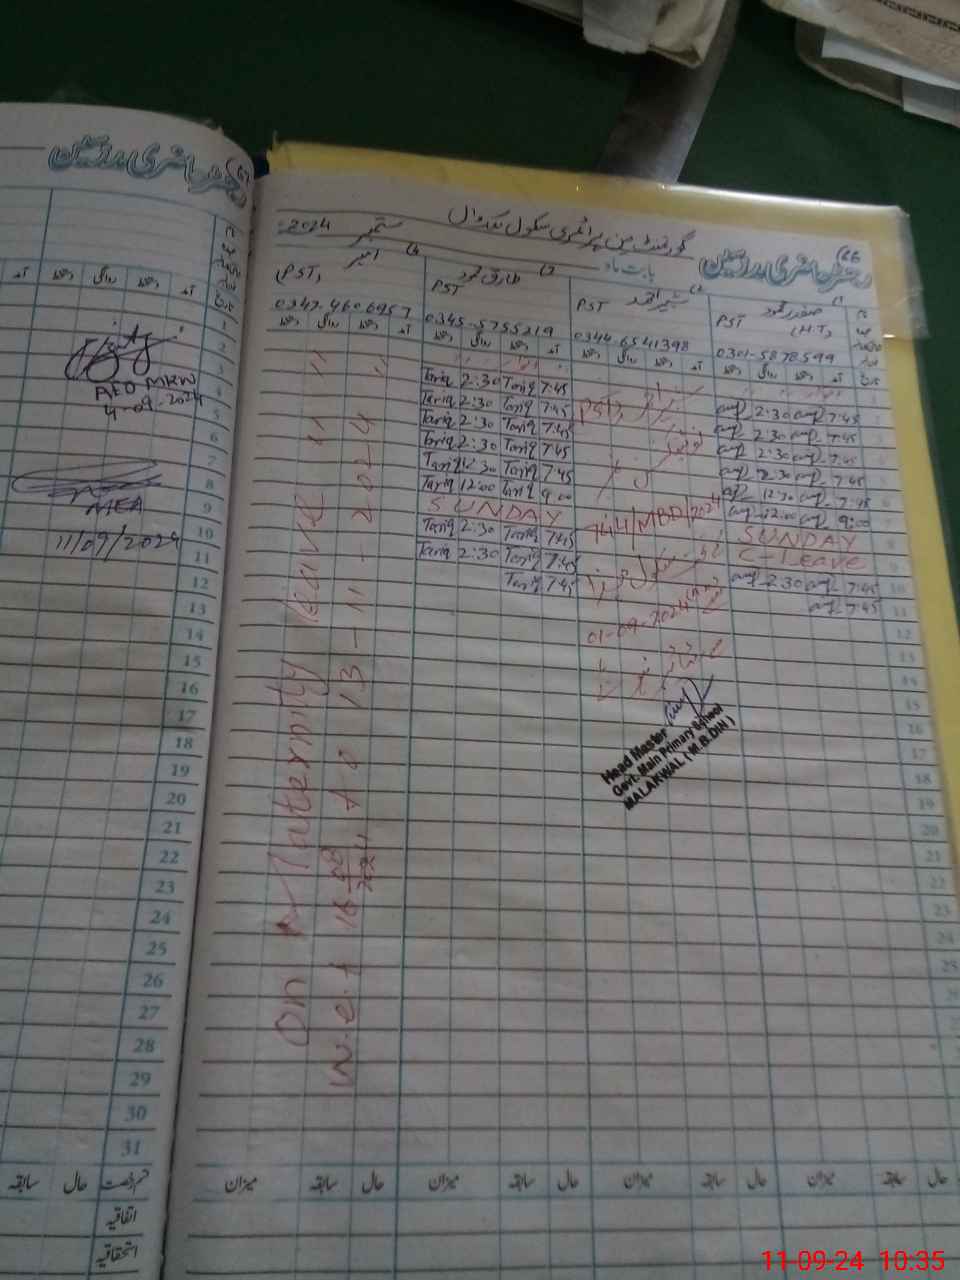 رجسٹر حاضری مدرسین
AEO MKW
4-09-2024
MEA
11/09/2024
1
2
3
4
5
6
7
8
9
10
11
12
13
14
15
16
17
18
19
20
21
22
23
24
25
26
27
28
29
30
31
سابقہ حال
اتفاقیہ
استحقاقیہ
66
رجسٹر حاضری مدرسین
گورنمنٹ مین پرائمری سکول ملکوال
بابت ماہ ستمبر 2024
PST
(H.T)
0301-5878599
PST
0344-6541398
طارق محمود
PST
0345-5755219
(PST)
0347-4606957
2:30 7:45
2:30 7:45
2:30 7:45
2:30 7:45
12:30 7:45
12:00 9:00
SUNDAY
C-Leave
2:30 7:45
7:45
Tariq 2:30 Tariq 7:45
Tariq 2:30 Tariq 7:45
Tariq 2:30 Tariq 7:45
Tariq 2:30 Tariq 7:45
Tariq 12:30 Tariq 7:45
Tariq 12:00 Tariq 9:00
SUNDAY
Tariq 2:30 Tariq 7:45
Tariq 2:30 Tariq 7:45
Tariq 7:45
PST
744/MBD/2024
01-09-2024
Head Master
Govt. Main Primary School
MALAKWAL (M.B.DIN)
On Maternity leave
w.e.f 16-08-2024 to 13-11-2024
میزان سابقہ حال میزان سابقہ حال میزان سابقہ حال میزان سابقہ حال
11-09-24 10:35